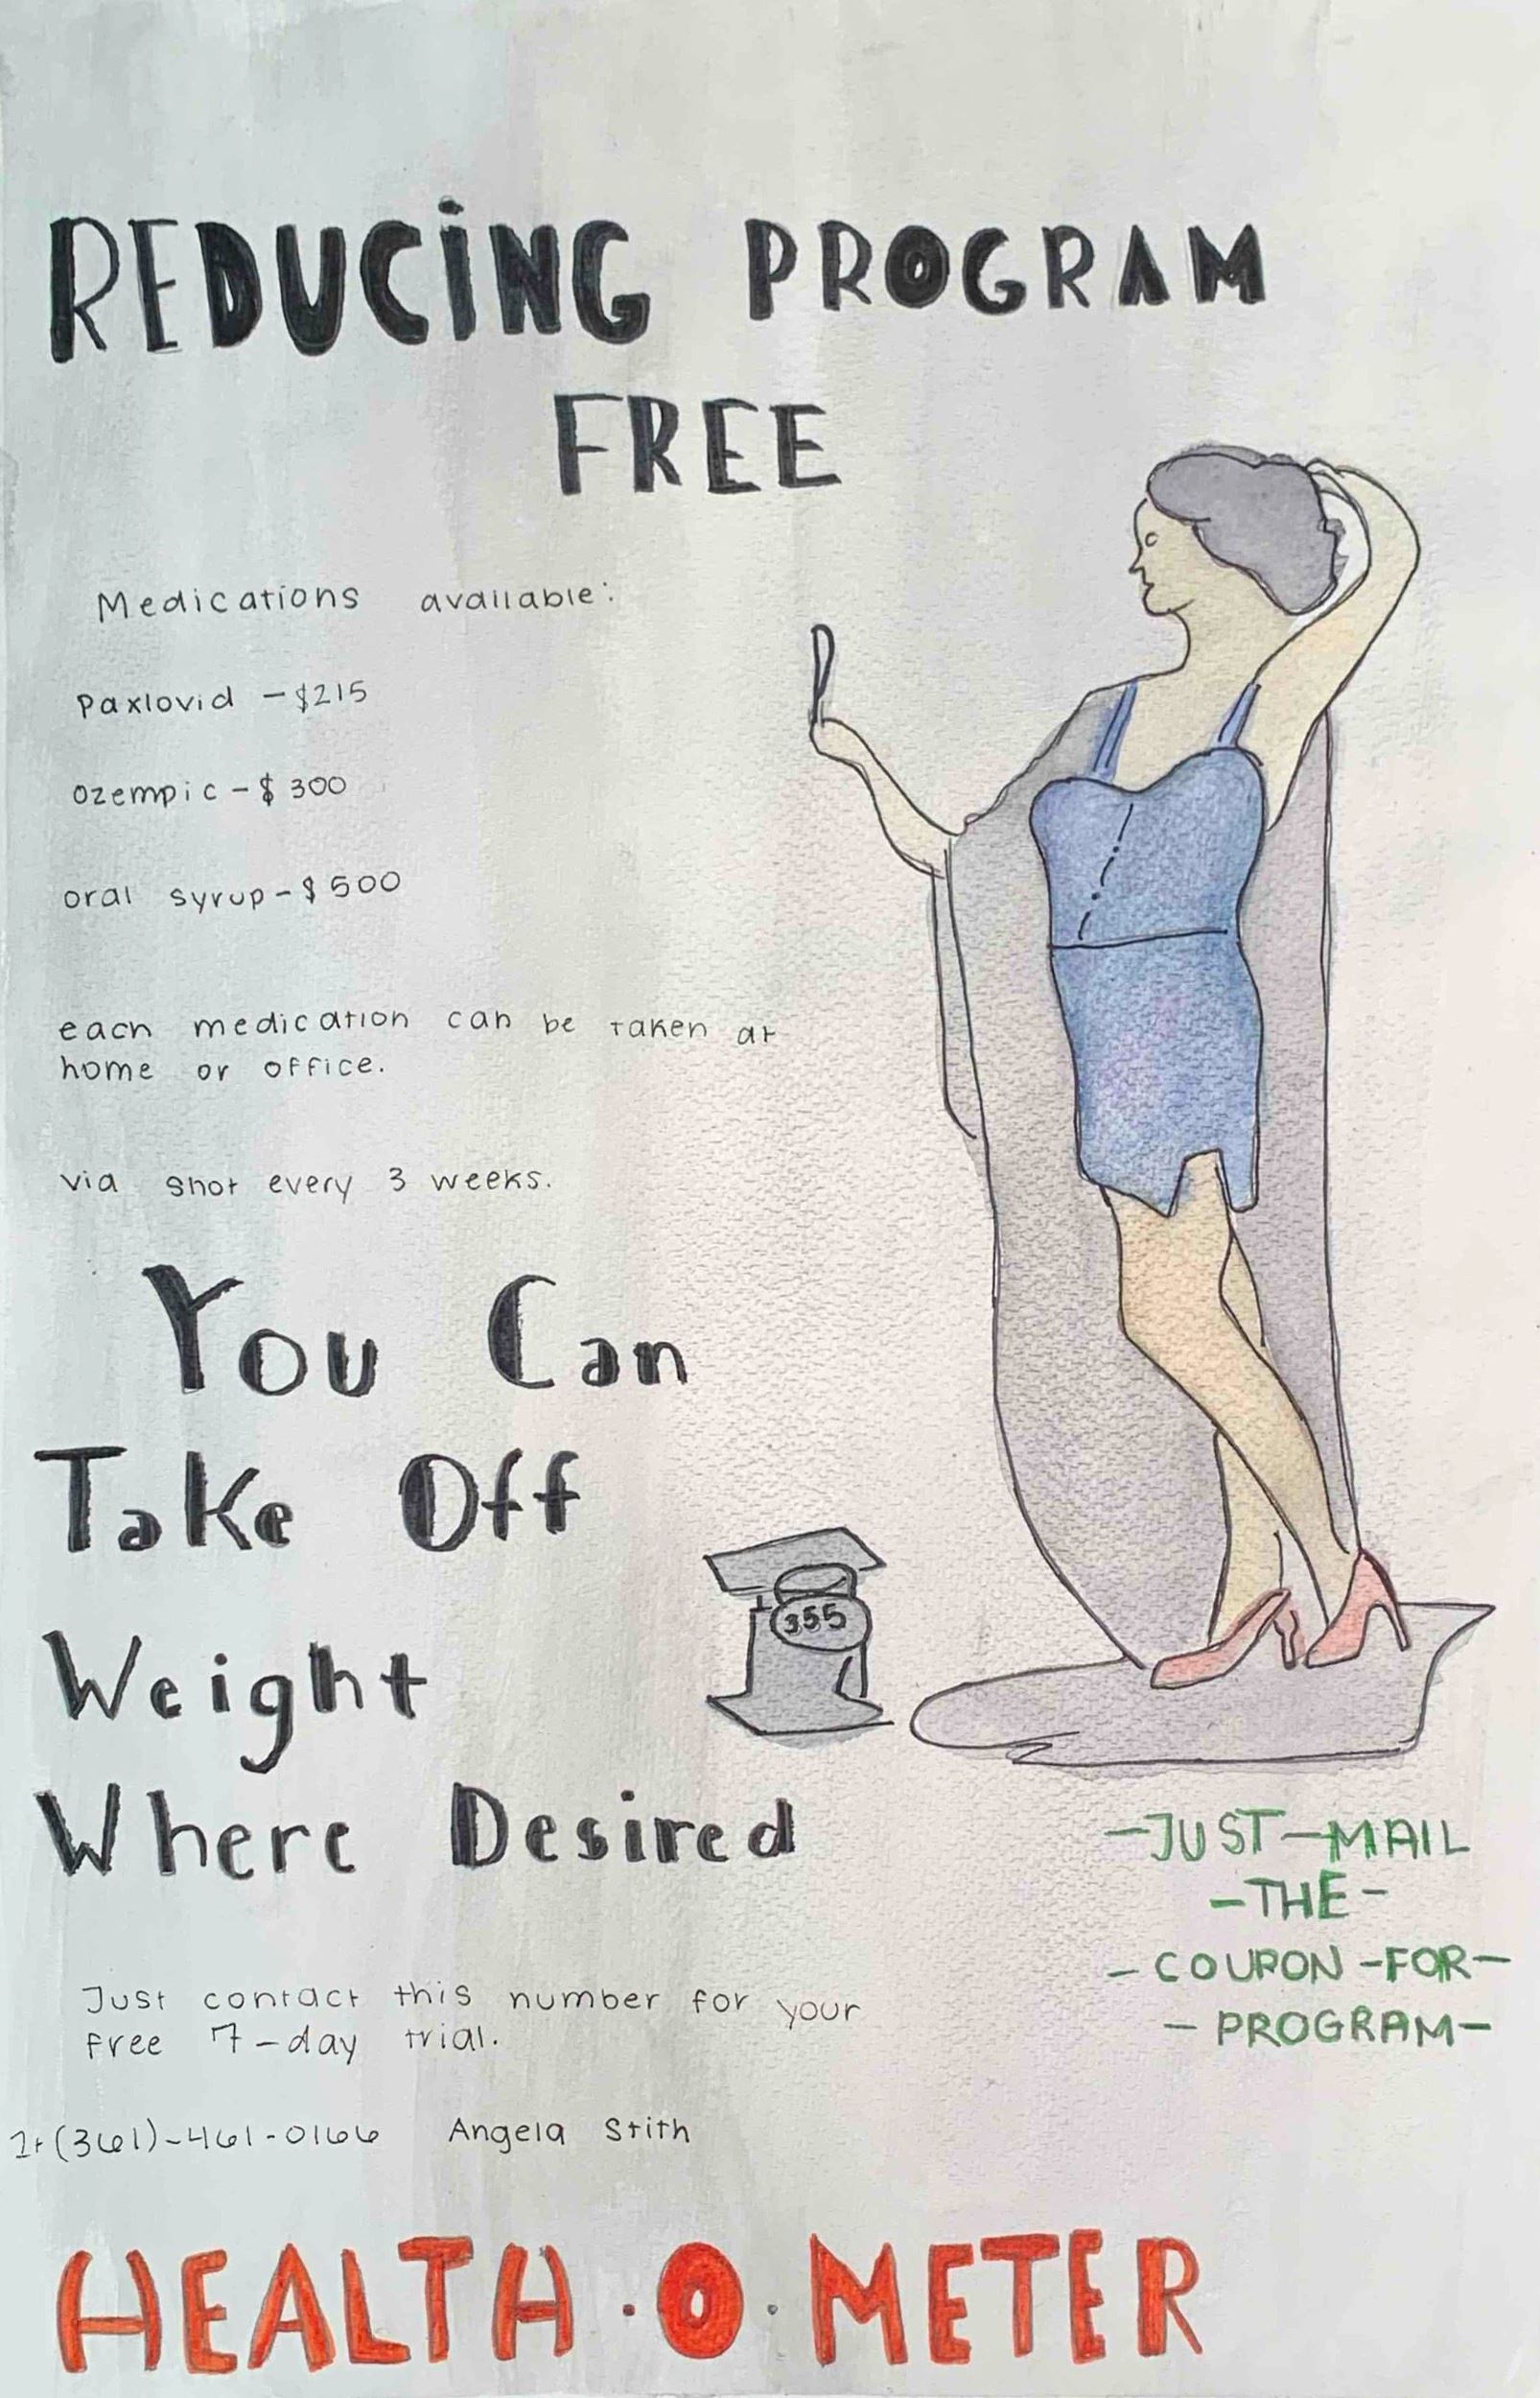 REDUCING PROGRAM
FREE
Medications available:
Paxlovid - $215
Ozempic - $300
oral syrup - $500
each medication can be taken at
home or office.
via shot every 3 weeks.
You Can
Take Off
Weight
Where Desired
355
-JUST-MAIL
-THE-
-COUPON-FOR-
-PROGRAM-
Just contact this number for your
free 7-day trial.
1+(361)-461-0166 Angela Stith
HEALTH·O·METER